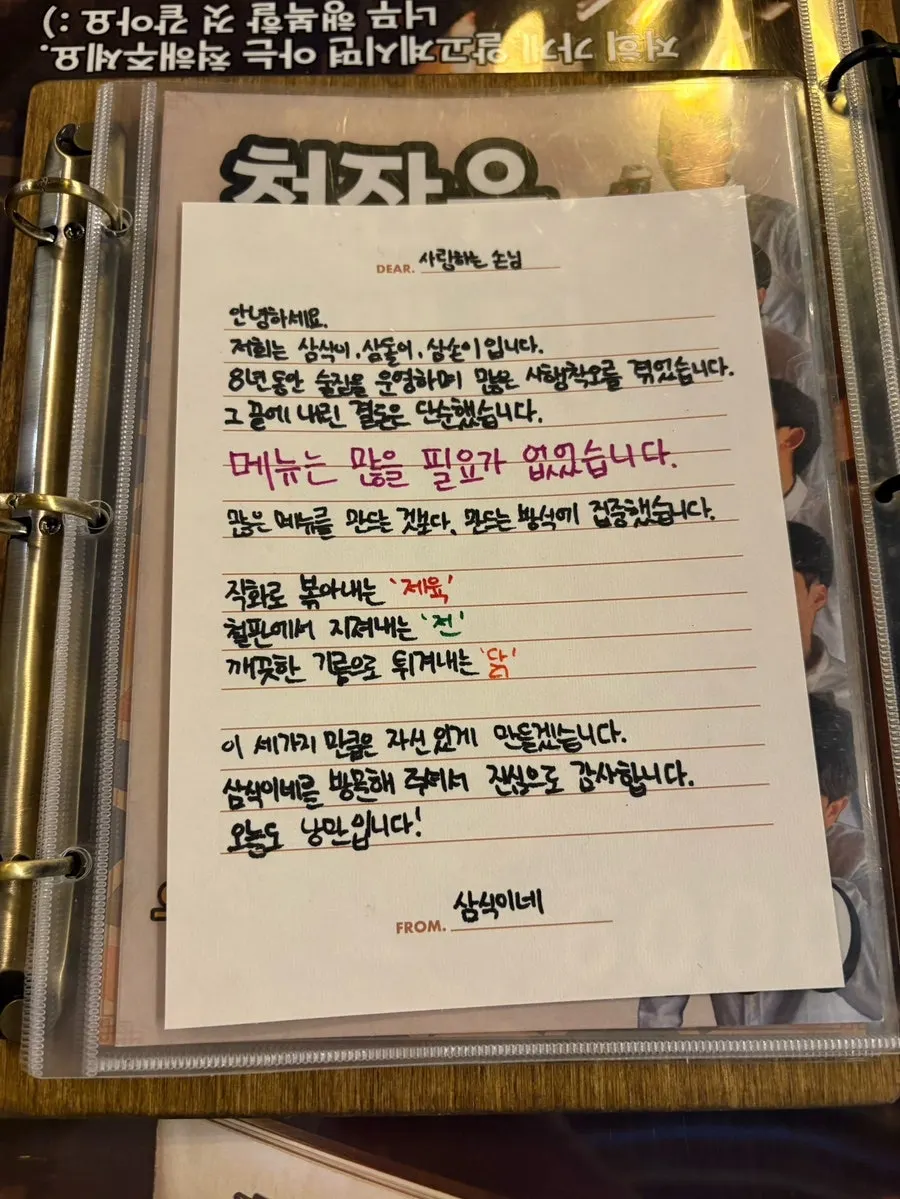 저희 가게 알고계시면 아는 척해주세요.
너무 행복할 것 같아요 :)
DEAR. 사랑하는 손님
안녕하세요.
저희는 삼식이, 삼둘이, 삼손이입니다.
8년동안 술집을 운영하며 많은 시행착오를 겪었습니다.
그 끝에 내린 결론은 단순했습니다.
메뉴는 많을 필요가 없었습니다.
많은 메뉴를 만드는 것보다, 만드는 방식에 집중했습니다.
직화로 볶아내는 '제육'
철판에서 지져내는 '전'
깨끗한 기름으로 튀겨내는 '닭'
이 세가지 만큼은 자신있게 만들겠습니다.
삼식이네를 방문해 주셔서 진심으로 감사합니다.
오늘도 낭만입니다!
FROM. 삼식이네